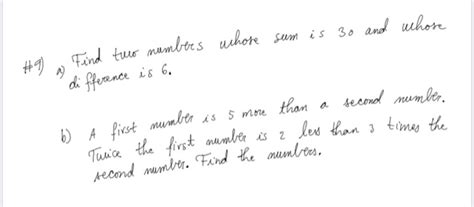 #9) a) Find two numbers whose sum is 30 and whose
difference is 6.
b) A first number is 5 more than a second number.
Twice the first number is 2 less than 3 times the
second number. Find the numbers.